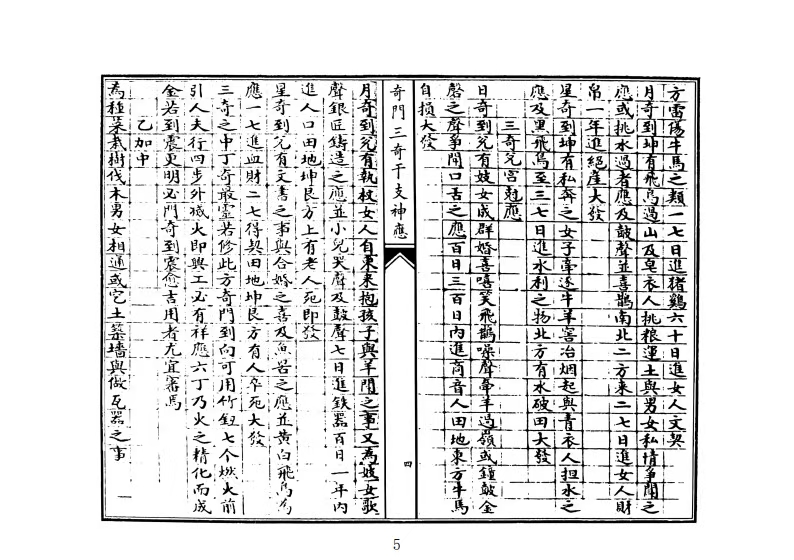 方雷傷牛馬之類一七日進猪鷄六十日進女人文契
月奇到坤有飛鳥過山及皂衣人挑粮運土與男女私情爭鬧之
應或挑水過者應及鼓聲並喜鵲南北二方來二七日進女人財
帛一年進絕產大發
星奇到坤有私奔之女子牽逐牛羊窑冶烟起與青衣人担水之
應及黑飛鳥至三七日進水利之物北方有水破田大發
三奇兌宮尅應
日奇到兌有妓女成群婚喜嘻笑飛鵲噪聲牽羊過嶺或鐘皷金
磬之聲爭鬧口舌之應百日三百日內進商音人田地東方牛馬
自損大發
奇門三奇干支神應
四
月奇到兌有執杖女人自東來抱孩子與羊鬧之事又為妓女歌
聲銀匠鋳造之應並小兒哭聲及鼓聲七日進鉄器百日一年內
進人口田地坤艮方上有老人死即發
星奇到兌有文書之事與合婚之喜及魚罟之應並黃白飛鳥為
應一七進血財二七得契田地坤艮方有人卒死大發
三奇之中丁奇最灵若修此方奇門到向可用竹釘七个燃火前
引人夫行四步外滅火即興工必有祥應六丁乃火之精化而成
金若到震更明必門奇到震愈吉用者尤宜審焉
乙加中
為種菜栽樹伐木男女相通或它土築墻與做瓦器之事
一
5